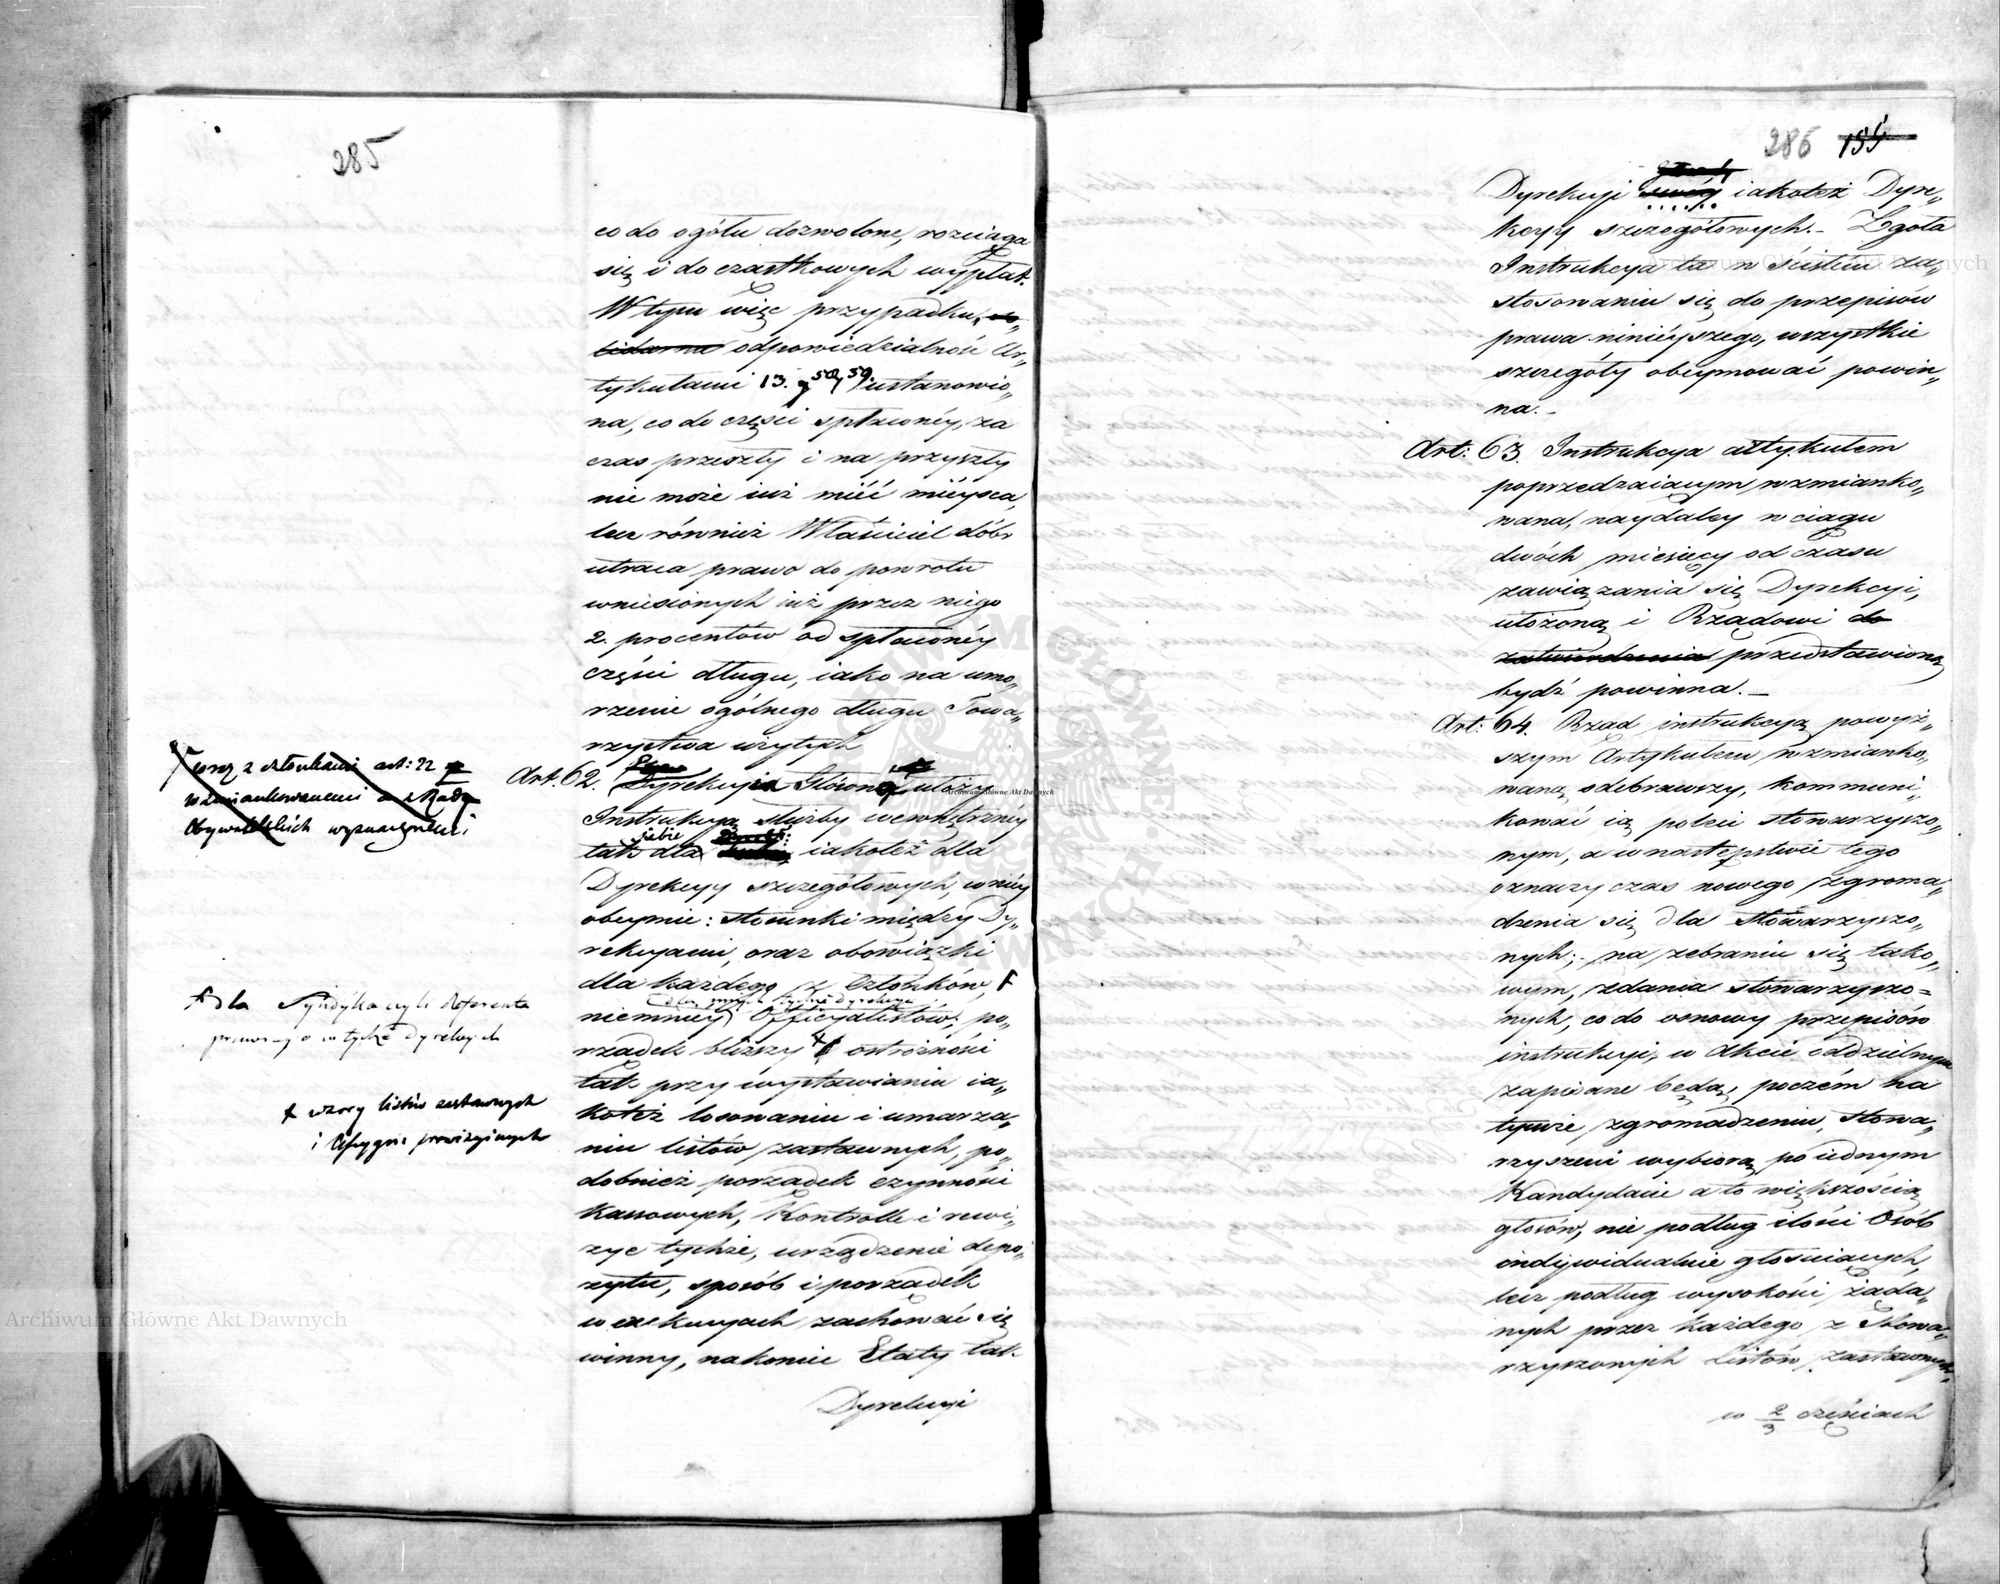 285
co do ogółu dozwolone, rozciąga
się i do cząstkowych wypłat.
W tym więc przypadku, so„
lidarna odpowiedzialność Ar„
tykułami 13. y 58 y 59. ustanowio„
na, co do części spłaconéy, za
czas przeszły i na przyszły
nie może iuż mieć mieysca,
lecz również Właściciel dóbr
utraca prawo do powrotu
wniesionych iuż przez niego
2. procentów od spłaconéy
części długu, iako na umo„
rzenie ogólnego długu Towa„
rzystwa użytych
wraz z członkami art: 22
wzmiankowanemi a z Rady
Obywatelskich wyznaczonemi
Art. 62. Dyrekcyia Główna ułoży
Instrukcyą służby wewnętrznéy
tak dla siebie iakoteż dla
Dyrekcyy szczegółowych, w niéy
obeymie: stosunki między Dy„
rekcyami, oraz obowiązki
dla każdego z Członków, F
niemniey Officyalistów; po„
dla innych tychże Dyrekcyi
rządek bliższy ostrożności
tak przy wystawianiu ia„
koteż losowaniu i umarza„
niu listów zastawnych, po„
dobnież porządek czynności
kassowych, Kontrolle i rewi„
zye tychże, urządzenie depo„
zytu, sposób i porządek
w exekucyach zachować się
winny, nakoniec Etaty tak
Dyrekcyi
F dla Syndyka czyli Referenta
prawnego w tychże Dyrekcyach
+ wzory listów zastawnych
i Cessyynie prowizyinych
286 155
Dyrekcyi swéy iakoteż Dyre„
kcyy szczegółowych. – Zgoła
Instrukcya ta w ścisłém za„
stosowaniu się do przepisów
prawa ninieyszego, wszystkie
szczegóły obeymować powin„
na. –
Art: 63. Instrukcya artykułem
poprzedzaiącym wzmianko„
wana, naydaley w ciągu
dwóch miesięcy od czasu
zawiązania się Dyrekcyi,
ułożoną i Rządowi do
zatwierdzenia przedstawioną
bydź powinna. –
Art: 64. Rząd instrukcyą powyż„
szym Artykułem wzmianko„
waną odebrawszy, kommuni„
kować ią poleci stowarzyszo„
nym, a w następstwie tego
oznaczy czas nowego zgroma„
dzenia się dla Stowarzyszo„
nych; – na zebraniu się tako„
wym, zdania stowarzyszo=
nych, co do osnowy przepisów
instrukcyi, w Akcie oddzielnym
zapisane będą, poczém na
tymże zgromadzeniu, Stowa„
rzyszeni wybiorą po iednym
Kandydacie a to większością
głosów, nie podług ilości Osób
indywidualnie głosuiących,
lecz podług wysokości żąda„
nych przez każdego z Stowa„
rzyszonych Listów zastawnych,
w 2/3 częściach